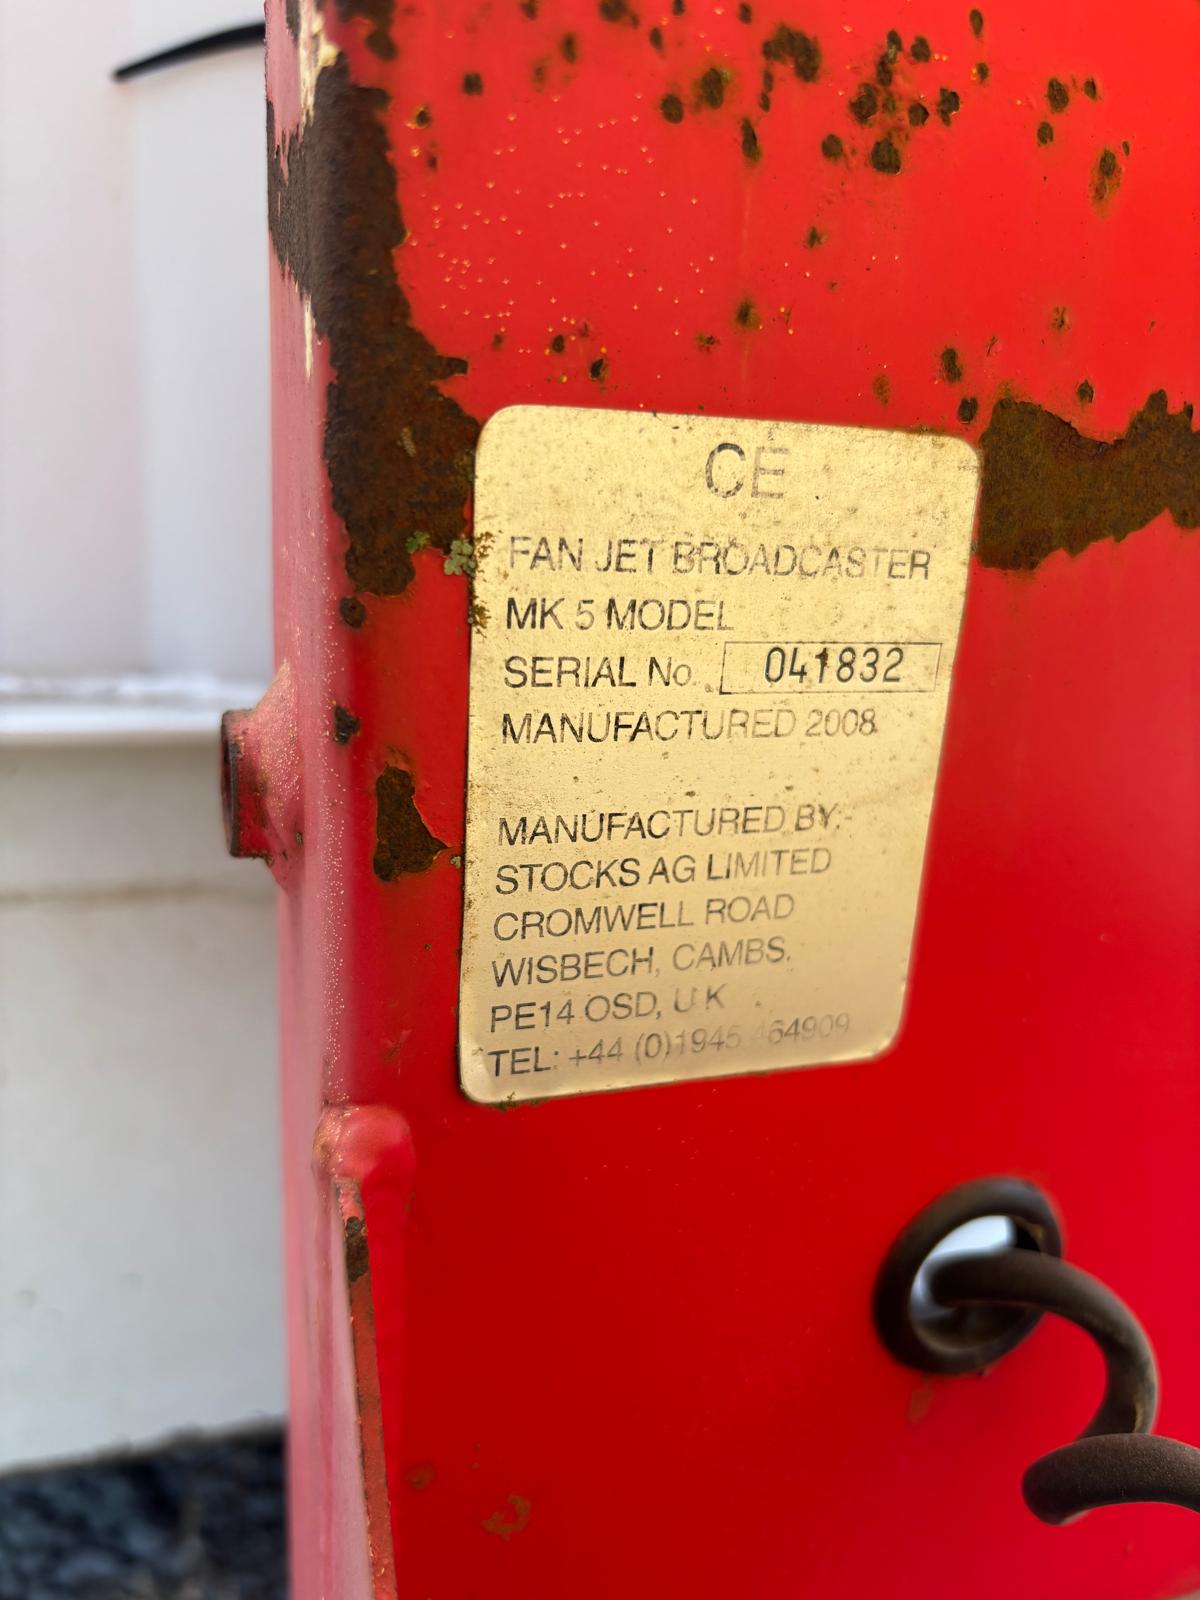 CE
FAN JET BROADCASTER
MK 5 MODEL
SERIAL No. 041832
MANUFACTURED 2008
MANUFACTURED BY:-
STOCKS AG LIMITED
CROMWELL ROAD
WISBECH, CAMBS.
PE14 OSD, U K
TEL: +44 (0)1945 464909